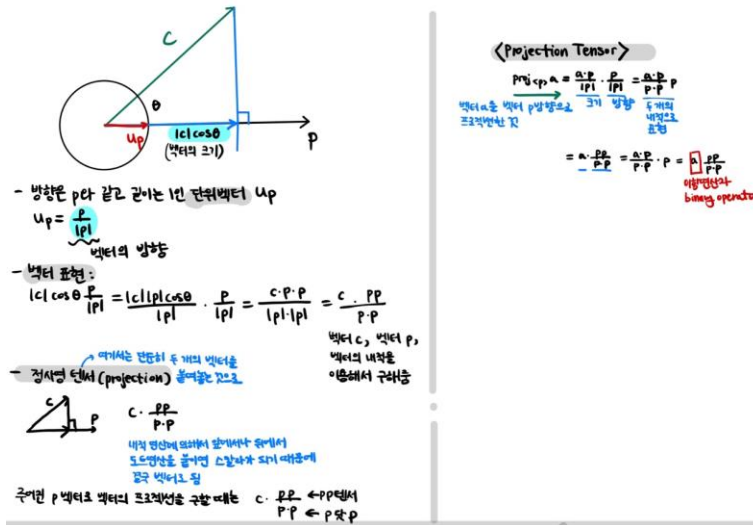 C
θ
Up
|c|cosθ
(벡터의 크기)
P
- 방향은 P와 같고 길이는 1인 단위벡터 Up
Up = P/|P|
벡터의 방향
- 벡터 표현:
|c|cosθ P/|P| = |c||P|cosθ/|P| · P/|P| = C·P·P/|P|·|P| = C · PP/P·P
벡터 C, 벡터 P,
벡터의 내적을
이용해서 구해줌
여기서는 단순히 두 개의 벡터를
- 정사영 텐서(projection) 붙여놓는 것으로
C
P
C · PP/P·P
내적 연산에 의해서 앞에서나 뒤에서
도트연산을 붙이면 스칼라가 되기 때문에
결국 벡터로 됨
주어진 P벡터로 벡터의 프로젝션을 구할 때는 C · PP/P·P ←PP텐서
← P닷P
<Projection Tensor>
Proj<P> a = a·P/|P| · P/|P| = a·P/P·P P
벡터 a를 벡터 P방향으로
프로젝션한 것
크기 방향 두 개의
내적으로
표현
= a · PP/P·P = a·P/P·P · P = a PP/P·P
이항연산자
binary operator